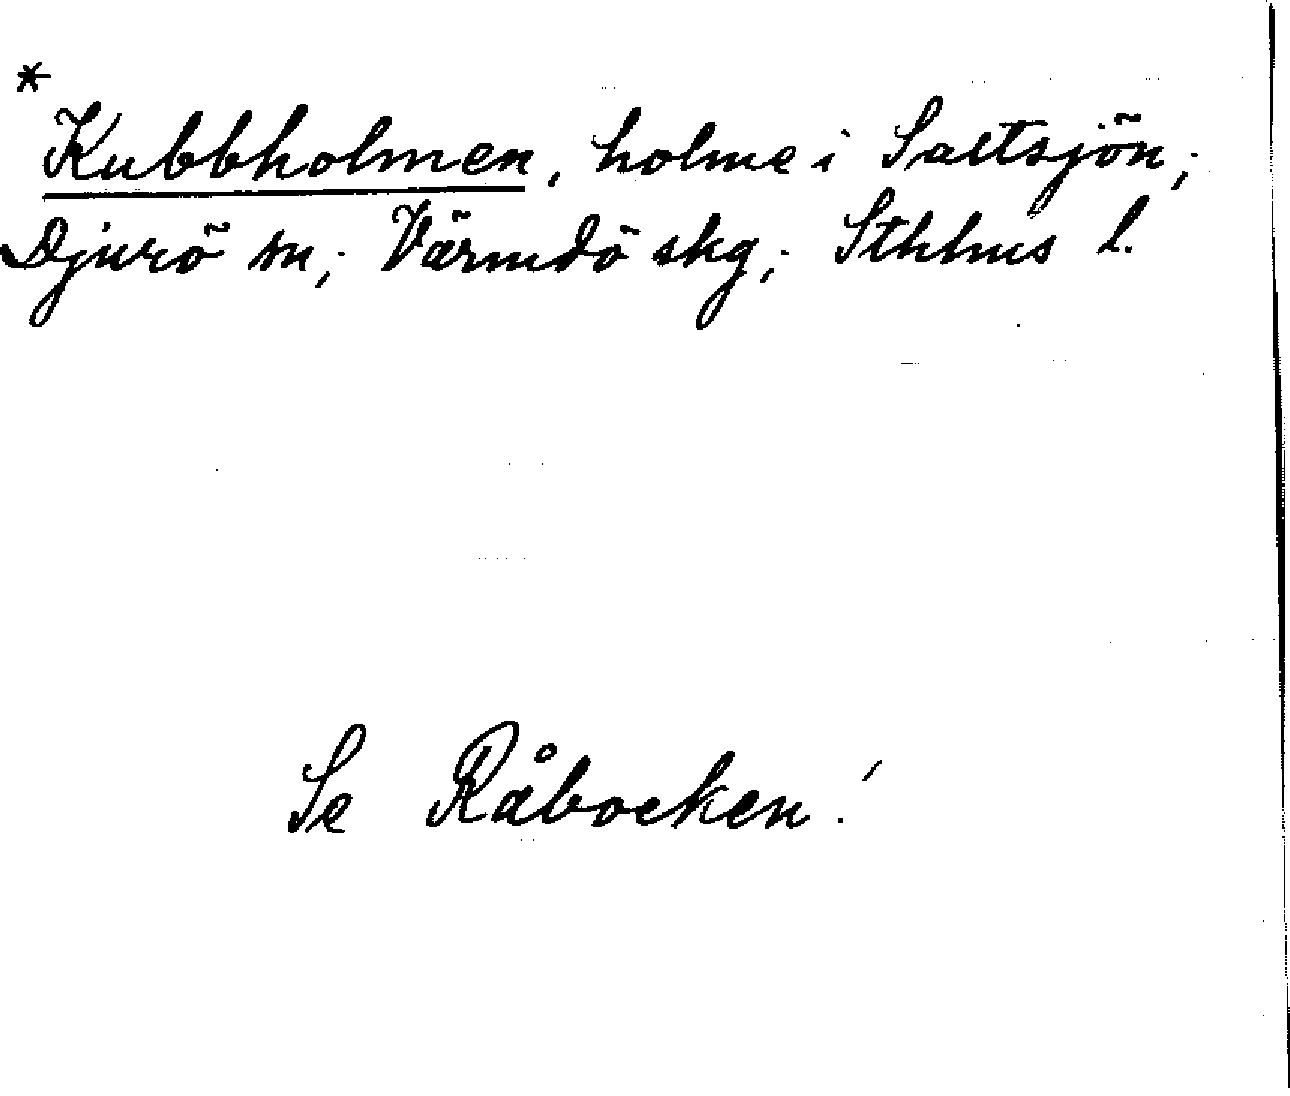 *
Kubbholmen, holme i Saltsjön;
Djurö sn; Värmdö skg; Sthlms l.
Se Råbocken!